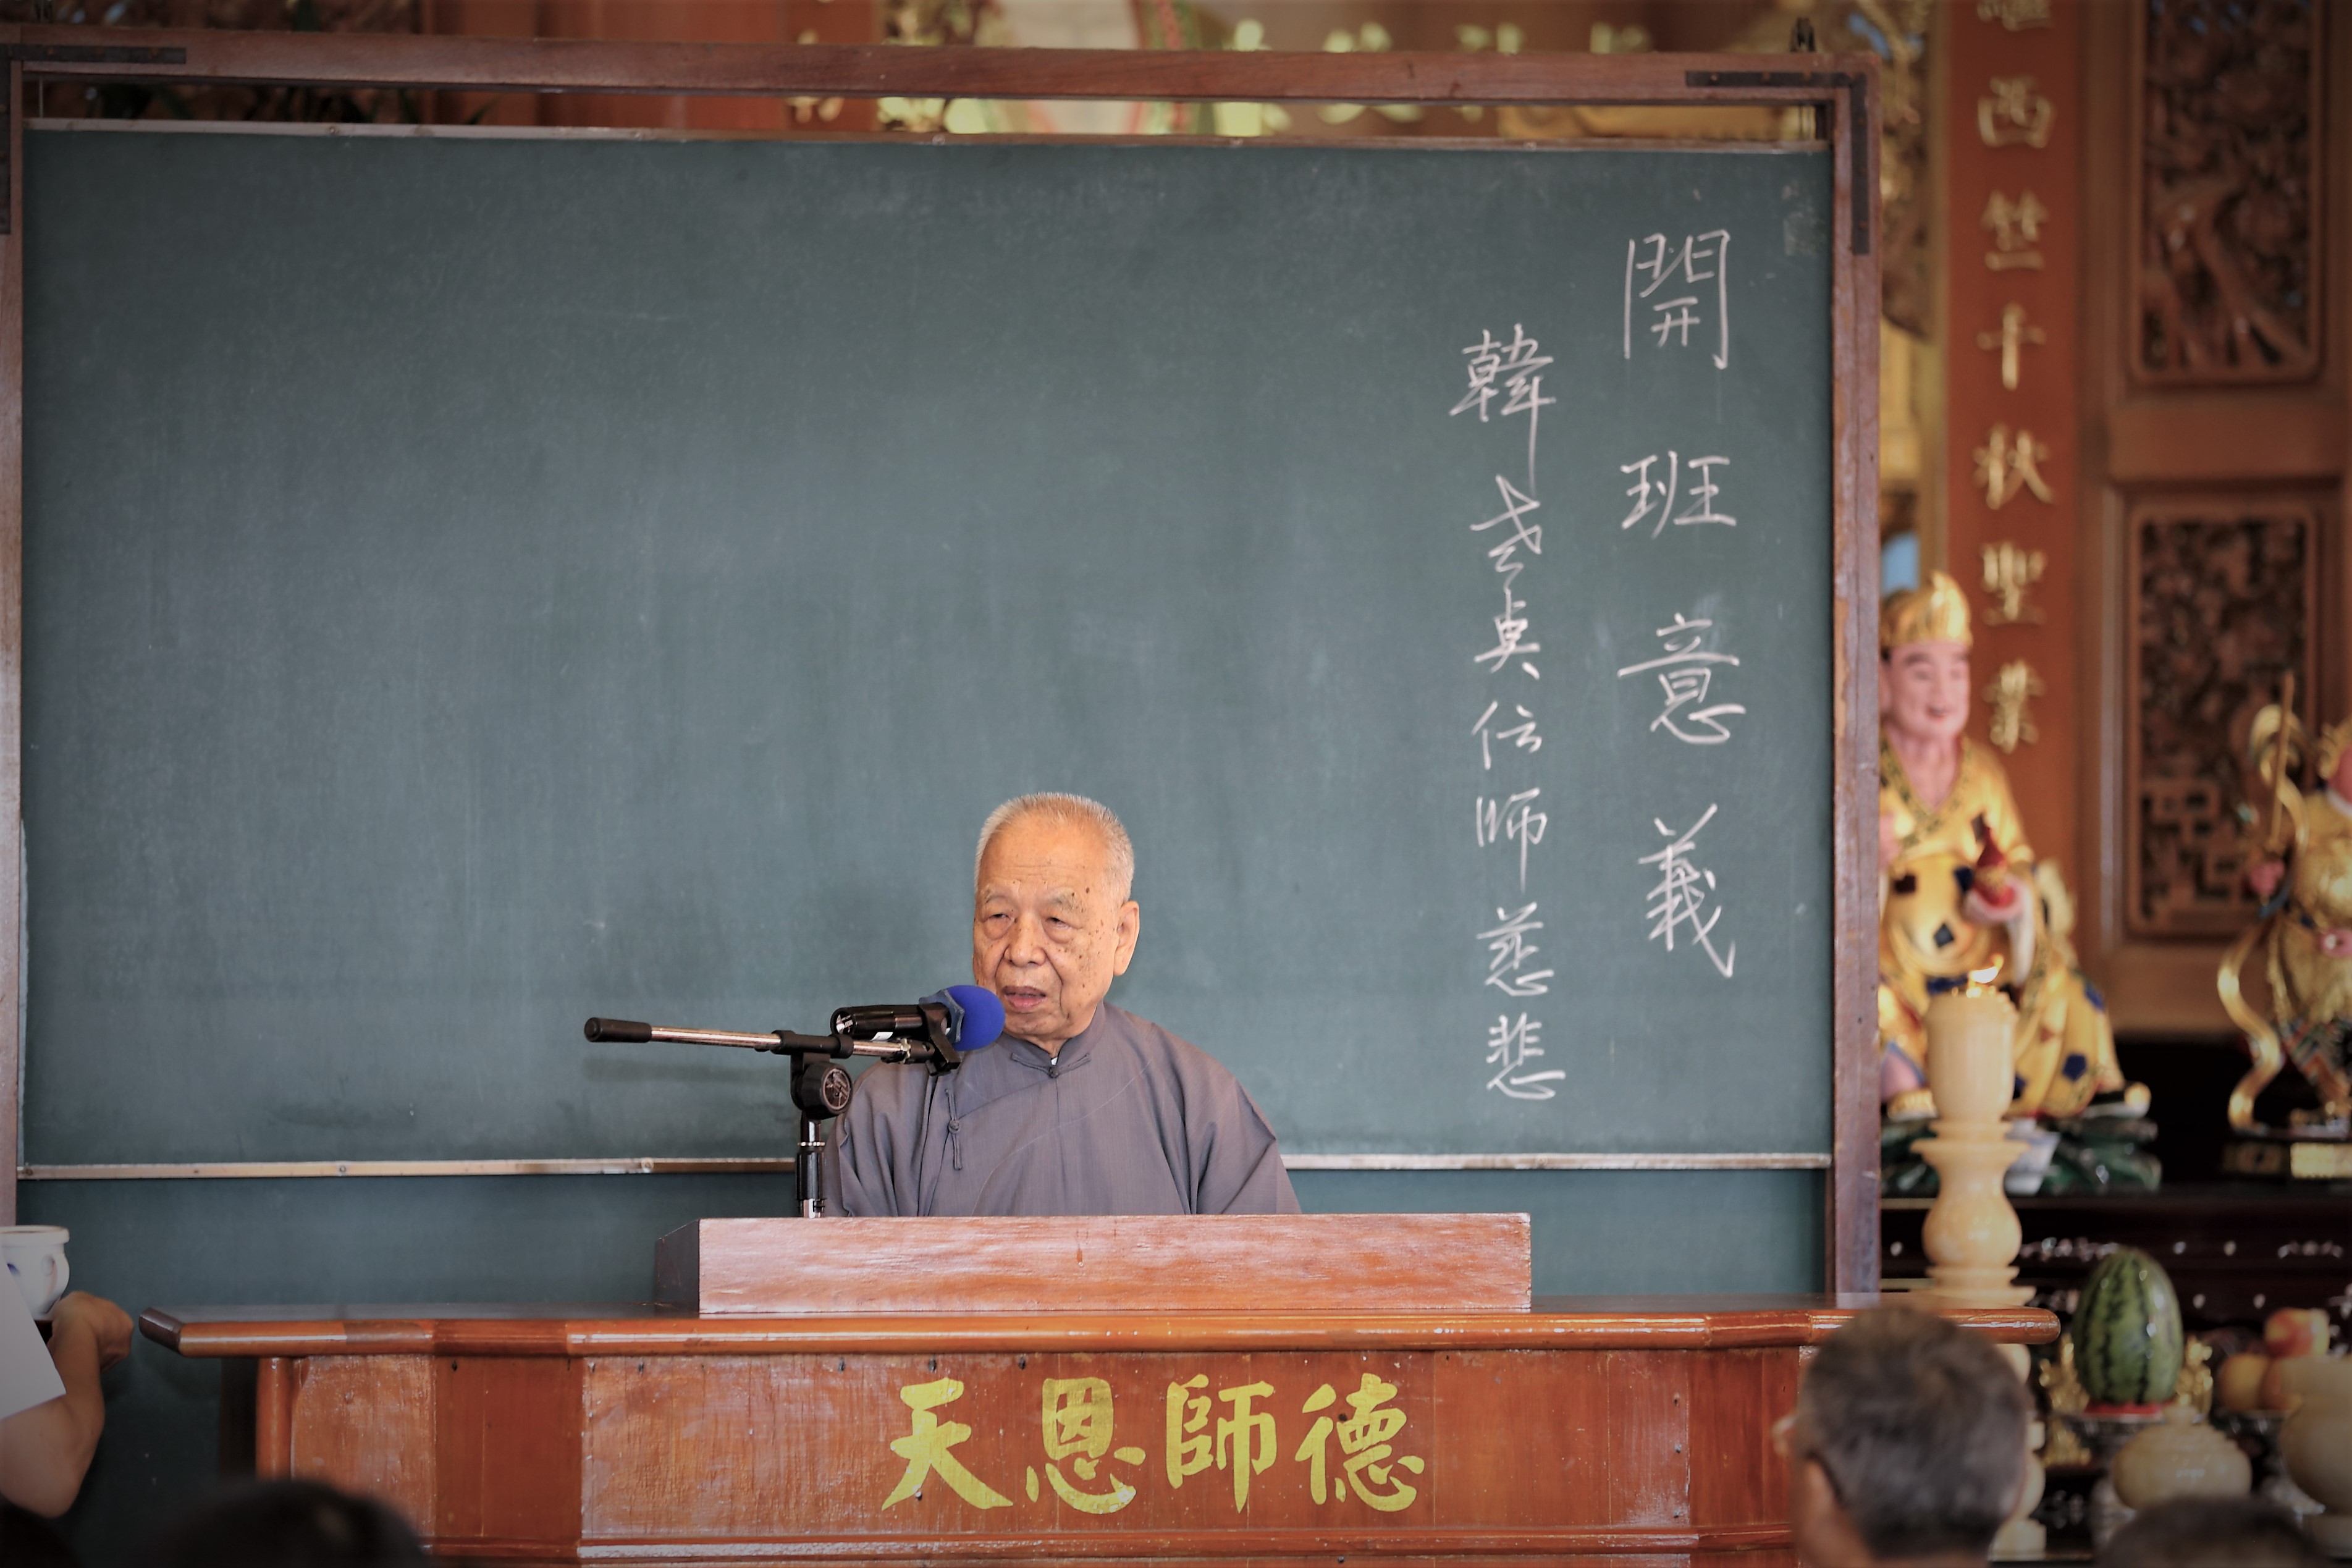 開班意義
韓老點傳師慈悲
西竺千秋聖業
天恩師德